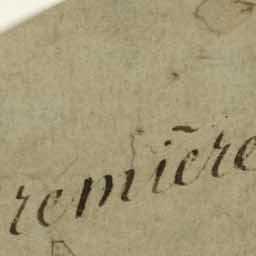 remière